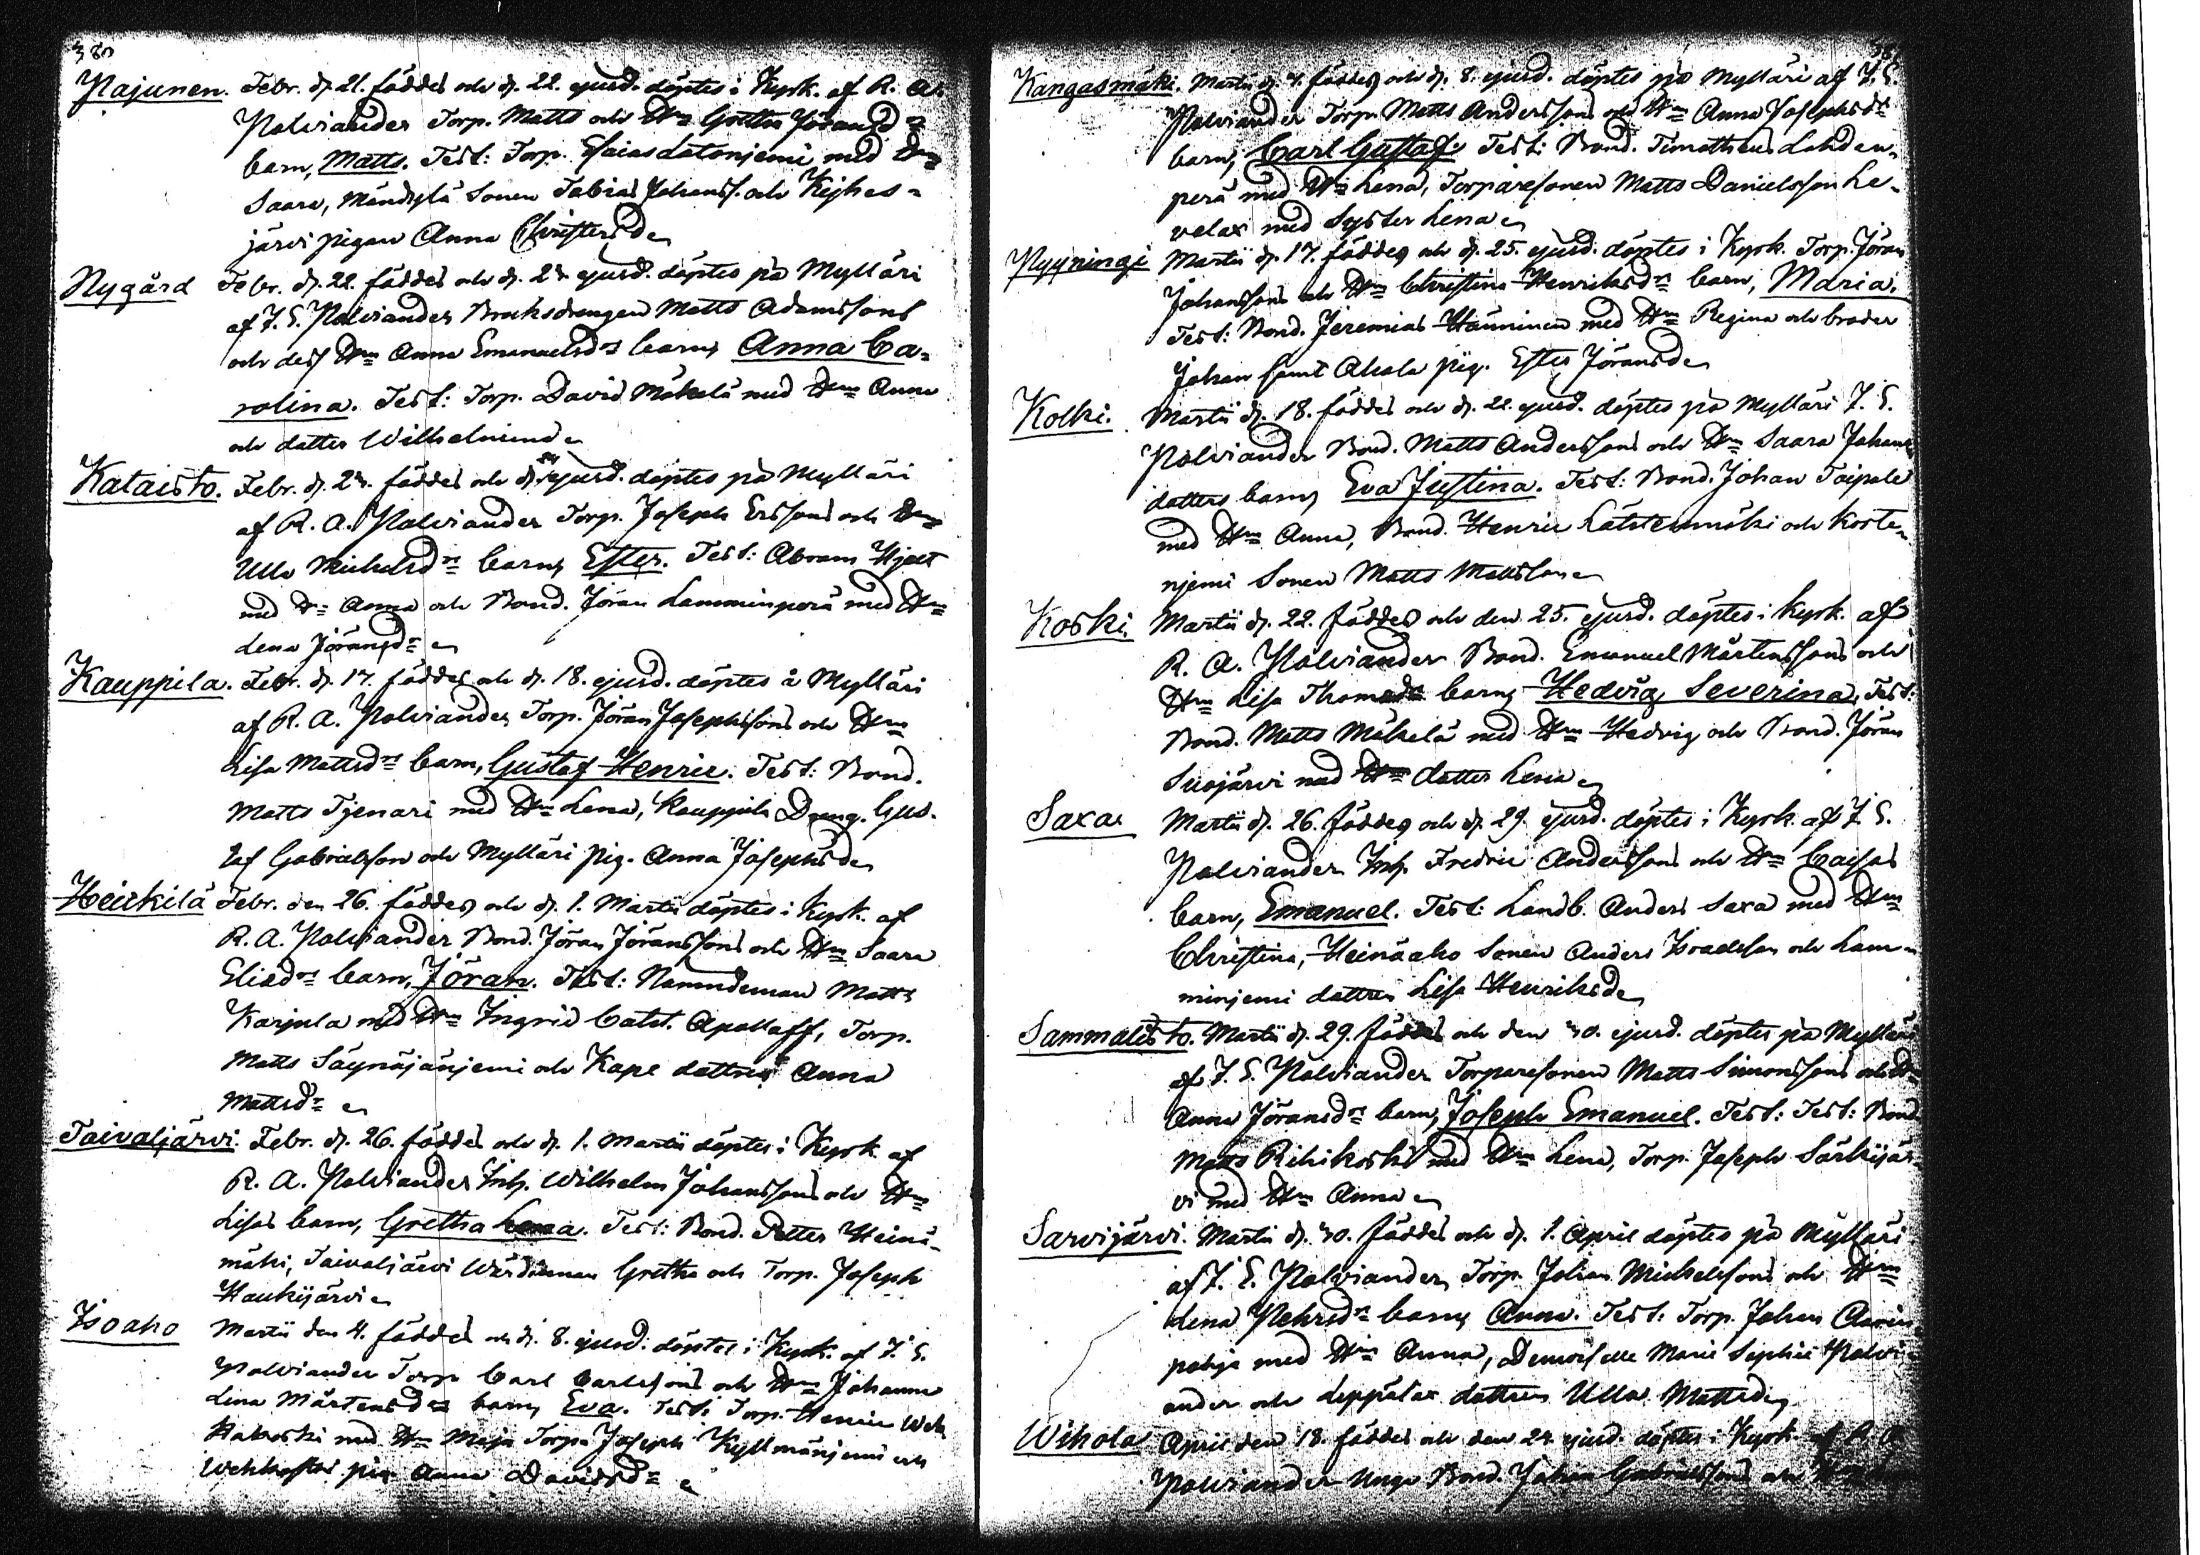 380
Pajunen. Febr. d. 21. föddes och d. 22. ejusd. döptes i Kyrk. af R. A.
Polviander Torp. Matts och H:u Gretha Jöransd:rs
barn, Matts. Test: Torp. Esaias Latonjemi med H:u
Saara, Mändylä Sonen Tobias Johanss. och Kejhes-
järvi pigan Anna Christersd:r
Nygård Febr. d. 22. föddes och d. 24. ejusd. döptes på Mylläri
af J. E. Polviander Bruksdrengen Matts Adamssons
och dess H:u Anna Emanuelsd:rs barn, Anna Ca-
rolina. Test: Torp. David Mäkelä med H:u Anna
och dotter Wilhelmina
Kataisto. Febr. d. 24. föddes och d. ejusd. döptes på Mylläri
af R. A. Polviander Torp. Joseph Erssons och H:u
Ulla Michelsd:rs barn, Ester. Test: Abram Hjelt
med H:u Anna och Bond. Jöran Lamminperä med H:u
Lena Jöransd:r
Kauppila. Febr. d. 17. föddes och d. 18. ejusd. döptes å Mylläri
af R. A. Polviander Torp. Jöran Josephssons och H:u
Lisa Mattsd:rs barn, Gustaf Henric. Test: Bond.
Matts Tjenari med H:u Lena, Kauppila Dreng. Gus-
taf Gabrielsson och Mylläri pig. Anna Josephsd:r
Heickilä Febr. den 26. föddes och d. 1. Martii döptes i Kyrk. af
R. A. Polviander Bond. Jöran Jöranssons och H:u Saara
Eliasd:rs barn, Jöran. Test: Nämndeman Matts
Karjula med H:u Ingrid Catst. Apolloff, Torp.
Matts Säynäjänjemi och Kape dottren Anna
Mattsd:r
Taivaljärvi. Febr. d. 26. föddes och d. 1. Martii döptes i Kyrk. af
R. A. Polviander Inh. Wilhelm Johanssons och H:u
Lisas barn, Gretha Lena. Test: Bond. Petter Heinä-
mäki, Taivaljärvi Wärdinnan Gretha och Torp. Joseph
Haukijärvi
Isoaho Martii den 4. föddes och d. 8. ejusd. döptes i Kyrk. af J. E.
Polviander Torp. Carl Carlssons och H:u Johanna
Lina Mårtensd:rs barn, Eva. Test: Torp. Henric Weh-
kakoski med H:u Maja Torp. Joseph Kyllmänjemi och
Wehkoskos pig. Anna Davidsd:r
Kangasmäki. Martii d. 4. föddes och d. 8. ejusd. döptes på Mylläri af J. E.
Polviander Torp. Matts Anderssons och H:u Anna Josephsd:rs
barn, Carl Gustaf. Test: Bond. Timotheus Lahden-
perä med H:u Lena, Torparesonen Matts Danielsson Le-
velax med Syster Lena
Pyyningi Martii d. 17. föddes och d. 25. ejusd. döptes i Kyrk. Torp. Jöran
Johanssons och H:u Christina Henriksd:rs barn, Maria.
Test: Bond. Jeremias Hänninen med H:u Regina och broder
Johan samt Ahola pig. Ester Jöransd:r
Kolki. Martii d. 18. föddes och d. 22. ejusd. döptes på Mylläri J. E.
Polviander Bond. Matts Anderssons och H:u Saara Johans
dotters barn, Eva Justina. Test: Bond. Johan Taipale
med H:u Anna, Bond. Henric Lätstenmäki och Korte-
njemi Sonen Matts Mattsson
Koski. Martii d. 22. föddes och den 25. ejusd. döptes i Kyrk. af
R. A. Polviander Bond. Emanuel Mårtenssons och
H:u Lisa Thomasd:rs barn, Hedvig Severina. Test:
Bond. Matts Mäkelä med H:u Hedvig och Bond. Jöran
Suojärvi med dotter Lena
Saxa Martii d. 26. föddes och d. 29. ejusd. döptes i Kyrk. af J. E.
Polviander Inh. Fredric Anderssons och H:u Caisas
barn, Emanuel. Test: Landb. Anders Saxa med H:u
Christina, Heinäaho Sonen Anders Isrаelsson och Lam-
minjemi dottren Lisa Henriksd:r
Sammalisto. Martii d. 29. föddes och den 30. ejusd. döptes på Mylläri
af J. E. Polviander Torparesonen Matts Simonssons och H:u
Anna Jöransd:rs barn, Joseph Emanuel. Test: Test: Bond.
Matts Rihikoski med H:u Lena, Torp. Joseph Särkijär-
vi med H:u Anna
Sarvijärvi. Martii d. 30. föddes och d. 1. April döptes på Mylläri
af J. E. Polviander Torp. Johan Michelssons och H:u
Lena Pehrsd:rs barn, Anna. Test: Torp. Johan
pohja med H:u Anna, Demoiselle Marie Sophie Polvi-
ander och Leppälax dottren Ulla Mattsd:r
Wihola April den 18. föddes och den 24. ejusd. döptes i Kyrk. af R. A.
Polviander Unge Bond. Johan Gabrielssons och